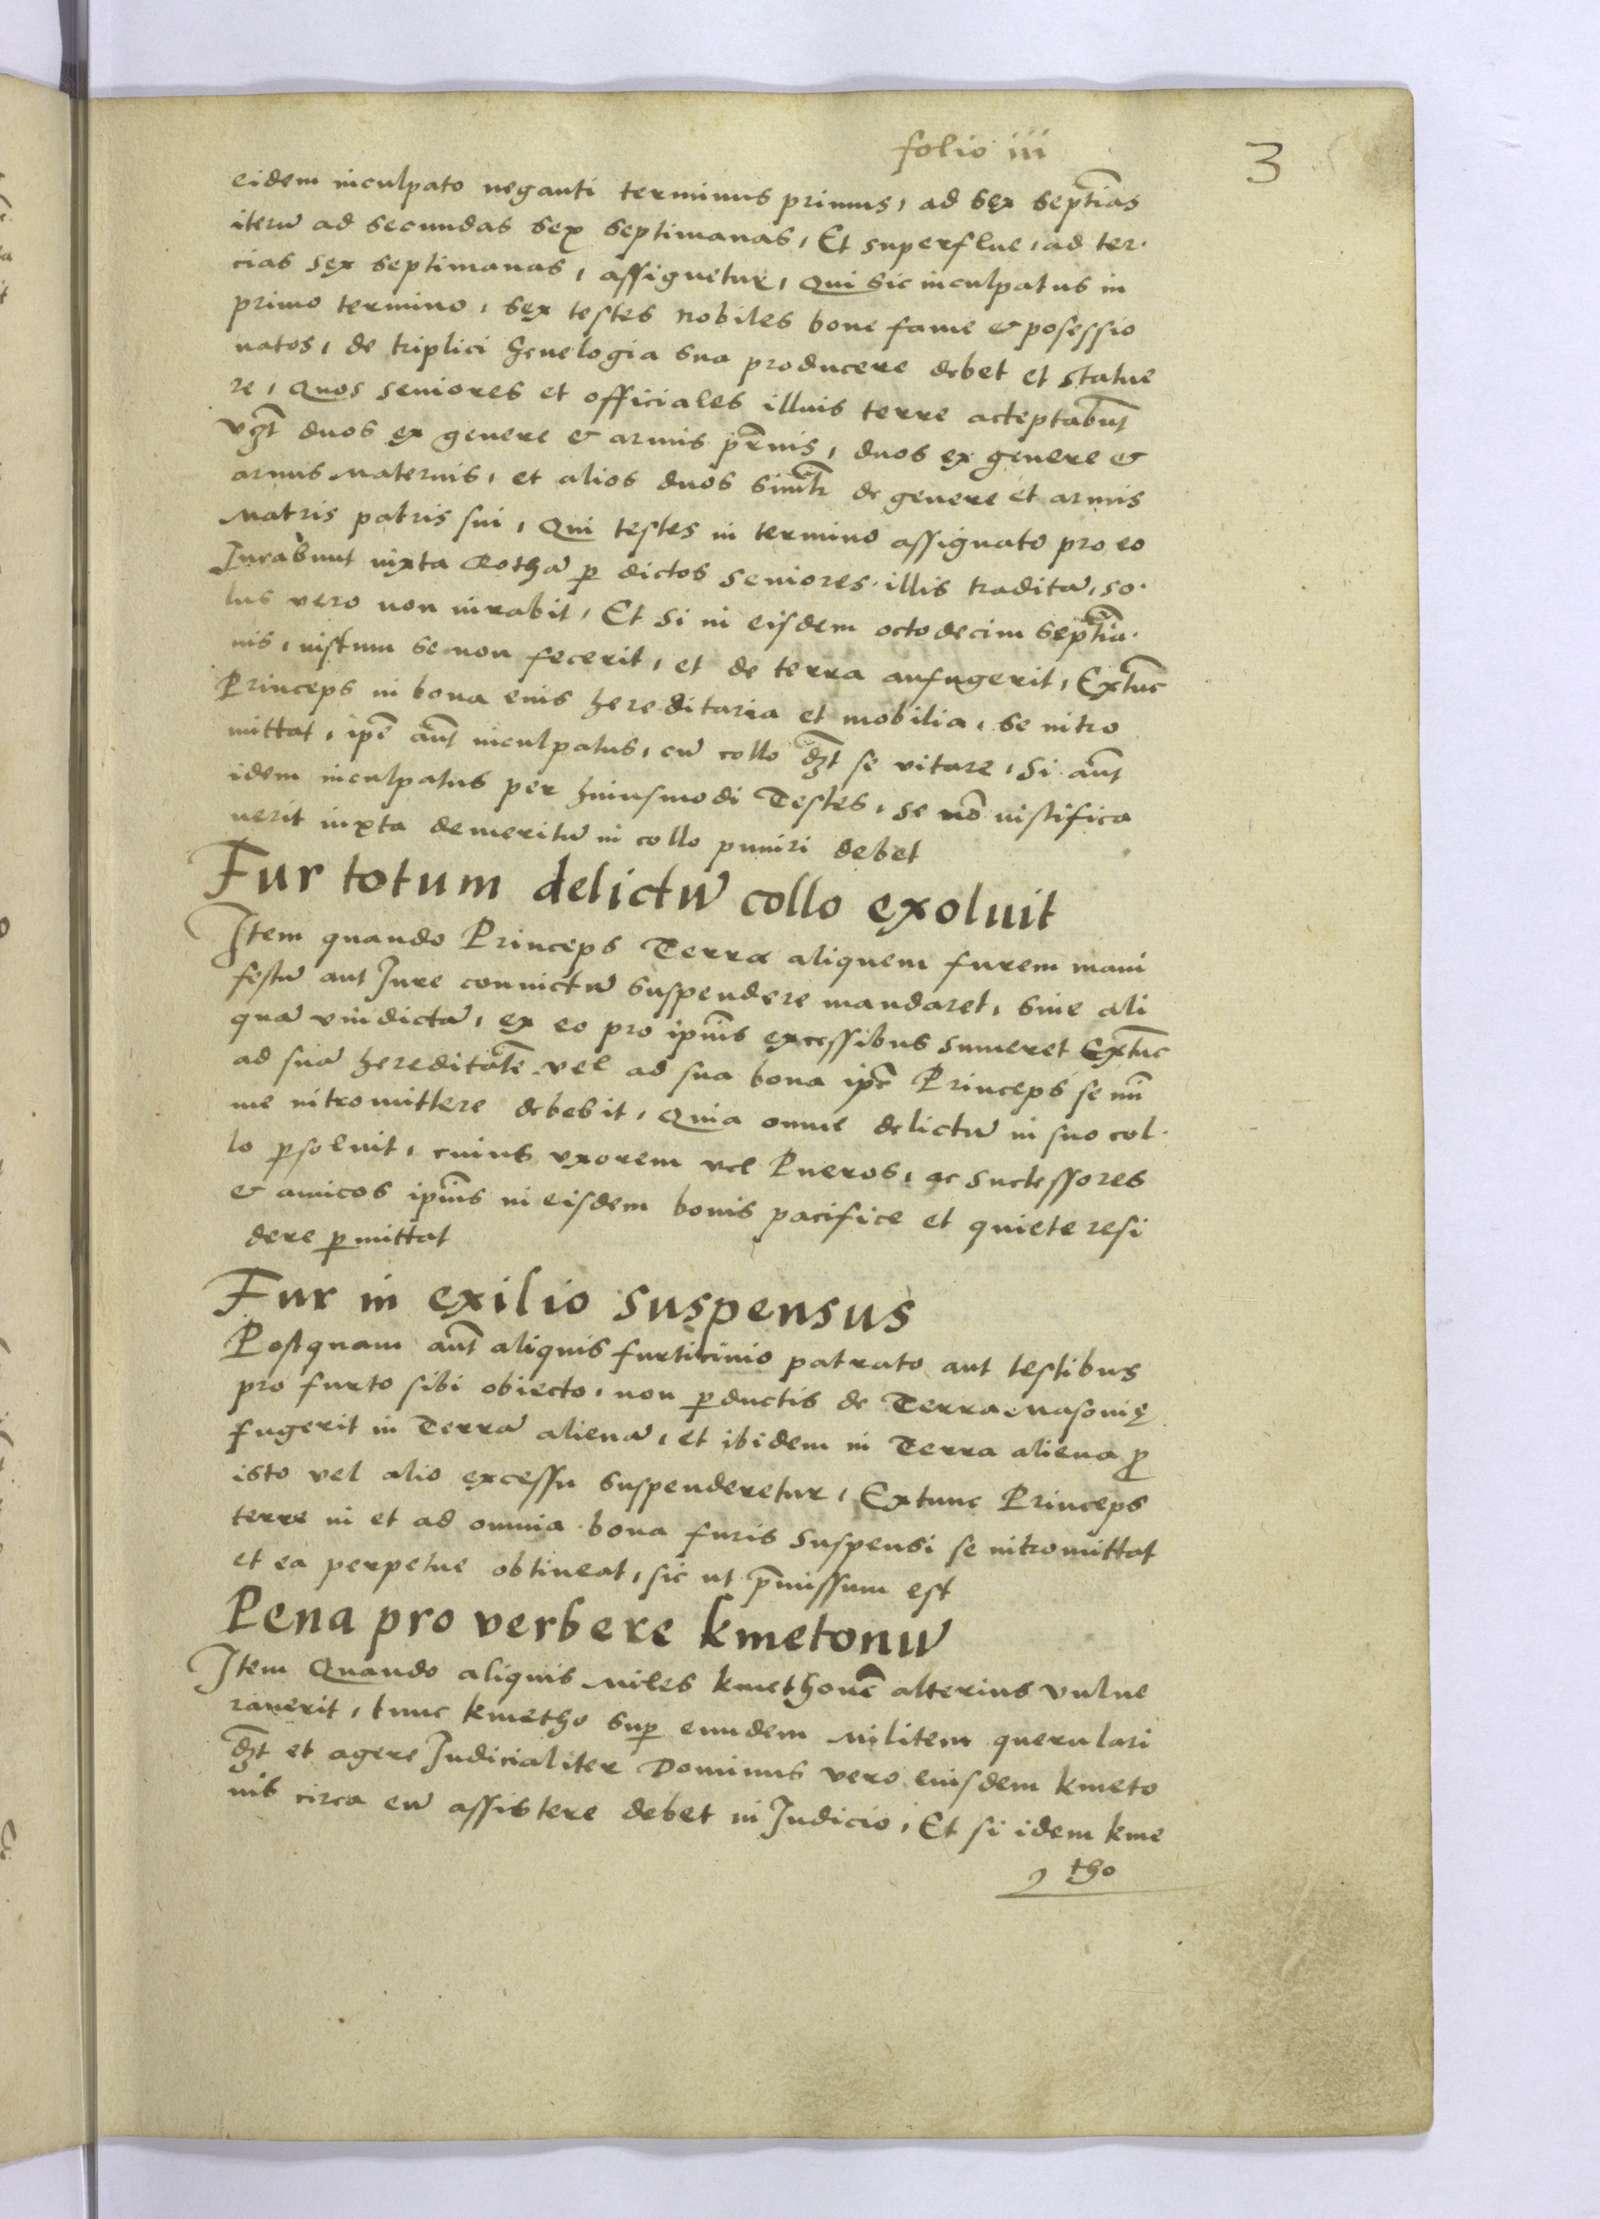 folio iii
3
eidem inculpato neganti terminus primus, ad sex septīas
iterū ad secundas sex septimanas, Et superflue, ad ter-
cias sex septimanas, assignetur, Qui sic inculpatus in
primo termino, sex testes nobiles bone fame & posessio
natos, de triplici genelogia sua producere debet et statue
re, Quos seniores et officiales illius terre acceptabūt
vꝫt duos ex genere & armis pr̄nis, duos ex genere &
armis Maternis, et alios duos simłr de genere et armis
Matris patris sui, Qui testes in termino assignato pro eo
Jurabunt iuxta Rothā ꝑ dictos seniores illis traditā, so-
lus vero non iurabit, Et si in eisdem octodecim septīa-
nis, iustum se non fecerit, et de terra aufugerit, Extūc
Princeps in bona eius hereditaria et mobilia, se intro
mittat, ipē aūt inculpatus, cū collo dꝫt se vitare, Si aūt
idem inculpatus per huiusmodi Testes, se nō iustifica
uerit iuxta demeritū in collo puniri debet
Fur totum delictū collo exoluit
Item quando Princeps Terræ aliquem furem mani
festū aut Jure conuictū suspendere mandaret, sine ali
qua vindicta, ex eo pro ipīus excessibus sumeret Extūc
ad suā hereditātē vel ad sua bona ipē Princeps se mī
me intromittere debebit, Quia omne delictū in suo col-
lo ꝑsoluit, cuius vxorem vel Pueros, ac successores
& amicos ipīus in eisdem bonis pacifice et quiete resi
dere ꝑmittat
Fur in exilio suspensus
Postquam aūt aliquis furticinio patrato aut testibus
pro furto sibi obiecto, non ꝑductis de Terra Masouię
fugerit in Terrā alienā, et ibidem in Terra aliena ꝓ
isto vel alio excessu suspenderetur, Extunc Princeps
terre in et ad omnia bona furis suspensi se intromittat
et ea perpetue obtineat, sic ut p̄missum est
Pena pro verbere kmetonū
Item Quando aliquis Miles kmethonē alterius vulne
rauerit, tunc kmetho suꝑ eundem Militem querulari
dꝫt et agere Judicialiter Dominus vero eiusdem kmeto
nis circa eū assistere debet in Judicio, Et si idem kme
tho